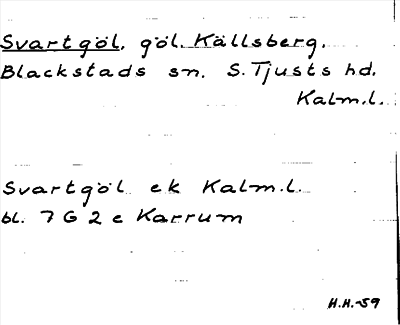 Svartgöl, göl, Källsberg,
Blackstads sn. S. Tjusts hd.
Kalm.l.
Svartgöl ek Kalm.l.
bl. 7 G 2 e Karrum
H.H.-59